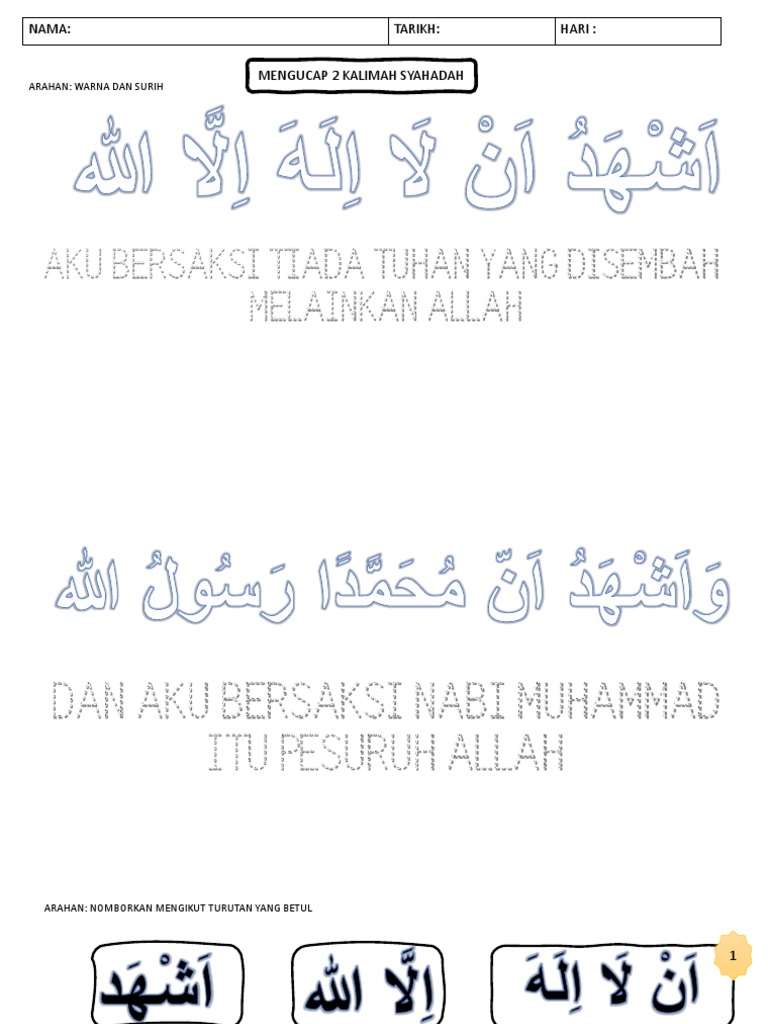 NAMA: TARIKH: HARI :
MENGUCAP 2 KALIMAH SYAHADAH
ARAHAN: WARNA DAN SURIH
اَشْهَدُ اَنْ لَا اِلَهَ اِلَّا الله
AKU BERSAKSI TIADA TUHAN YANG DISEMBAH
MELAINKAN ALLAH
وَاَشْهَدُ اَنّ مُحَمَّدًا رَسُولُ الله
DAN AKU BERSAKSI NABI MUHAMMAD
ITU PESURUH ALLAH
ARAHAN: NOMBORKAN MENGIKUT TURUTAN YANG BETUL
اَشْهَد اِلَّا الله اَنْ لَا اِلَهَ
1